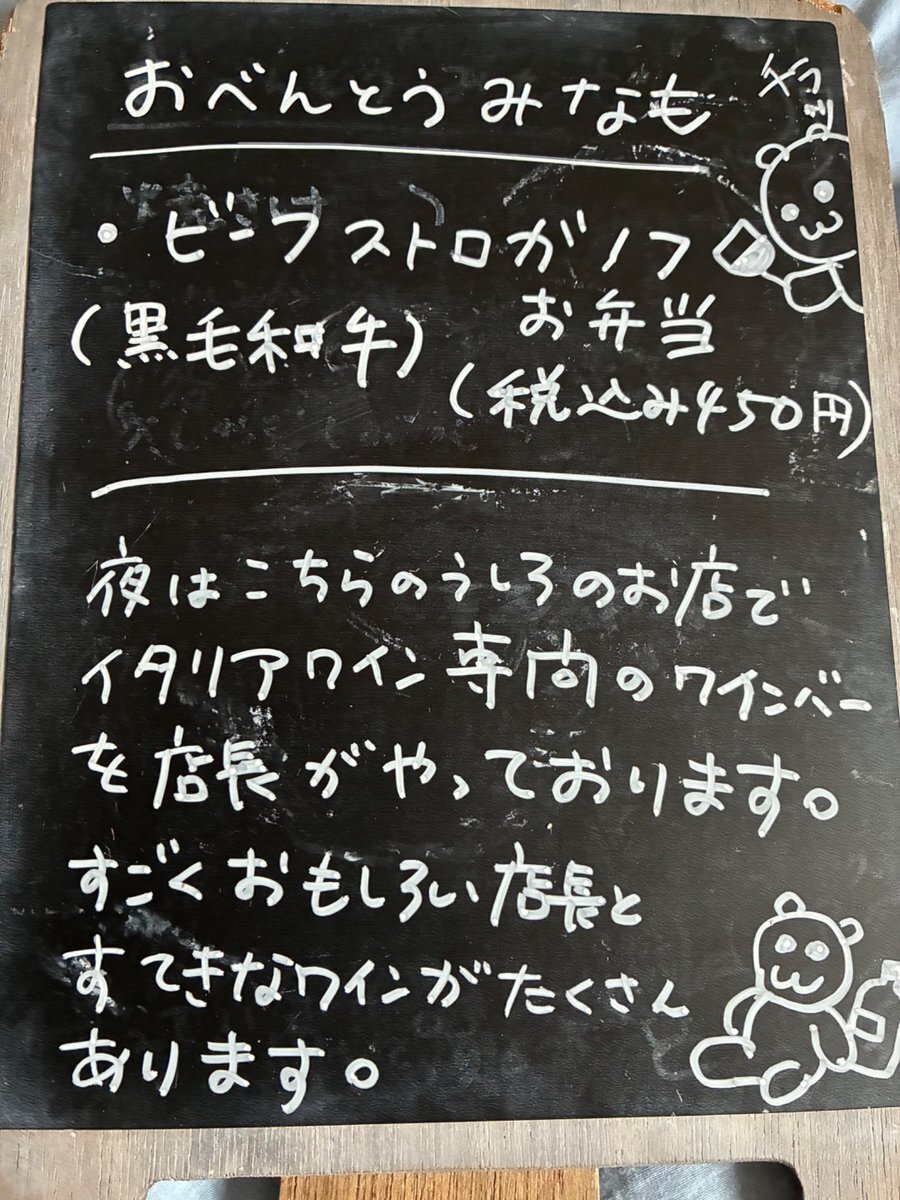 おべんとう みなも
・ビーフストロガノフ
お弁当
(黒毛和牛)
(税込み450円)
夜はこちらのうしろのお店で
イタリアワイン専門のワインバー
を店長がやっております。
すごくおもしろい店長と
すてきなワインがたくさん
あります。